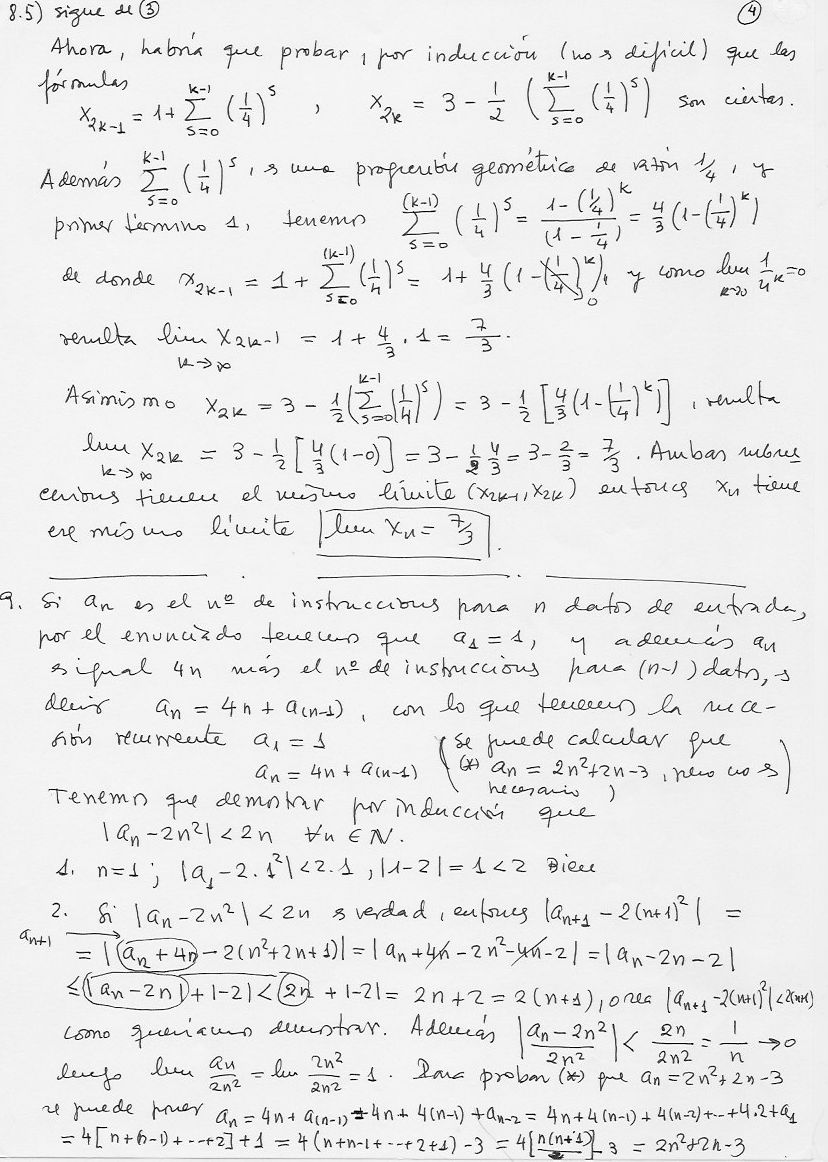 8.5) sigue de ③ ④
Ahora, habría que probar, por inducción (no s difícil) que las
fórmulas
x_{2k-1} = 1 + \sum_{s=0}^{k-1} (1/4)^s , x_{2k} = 3 - 1/2 (\sum_{s=0}^{k-1} (1/4)^s) son ciertas.
Además \sum_{s=0}^{k-1} (1/4)^s, s una progresión geométrica de razón 1/4, y
primer término 1, tenemos \sum_{s=0}^{(k-1)} (1/4)^s = (1-(1/4)^k)/(1-1/4) = 4/3 (1-(1/4)^k)
de donde x_{2k-1} = 1 + \sum_{s=0}^{(k-1)} (1/4)^s = 1 + 4/3 (1-(1/4)^k)_0, y como lim_{k→∞} 1/4^k = 0
resulta lim_{k→∞} x_{2k-1} = 1 + 4/3 . 1 = 7/3.
Asimismo x_{2k} = 3 - 1/2 (\sum_{s=0}^{k-1} (1/4)^s) = 3 - 1/2 [4/3 (1-(1/4)^k)], resulta
lim_{k→∞} x_{2k} = 3 - 1/2 [4/3 (1-0)] = 3 - 1/2 4/3 = 3 - 2/3 = 7/3. Ambas subsu
cesions tienen el mismo límite (x_{2k-1}, x_{2k}) entonces x_n tiene
ese mismo límite lim x_n = 7/3.
9. Si a_n es el nº de instruccions para n datos de entrada,
por el enunciado tenemos que a_1 = 1, y además a_n
s igual 4n más el nº de instruccions para (n-1) datos, s
decir a_n = 4n + a_{(n-1)}, con lo que tenemos la suce-
sión recurrente a_1 = 1 (se puede calcular que
a_n = 4n + a_{(n-1)} (*) a_n = 2n²+2n-3, pero no s
necesario)
Tenemos que demostrar por inducción que
|a_n - 2n²| < 2n ∀n ∈ N.
1. n=1 ; |a_1 - 2.1²| < 2.1, |1-2| = 1 < 2 Bien
2. Si |a_n - 2n²| < 2n s verdad, entonces |a_{n+1} - 2(n+1)²| =
a_{n+1} → = |(a_n + 4n) - 2(n²+2n+1)| = |a_n + 4n - 2n² - 4n - 2| = |a_n - 2n - 2|
≤ |a_n - 2n| + |-2| < 2n + |-2| = 2n+2 = 2(n+1), o sea |a_{n+1} - 2(n+1)²| < 2(n+1)
como queríamos demostrar. Además |(a_n - 2n²)/2n²| < 2n/2n² = 1/n → 0
luego lim a_n/2n² = lim 2n²/2n² = 1. Para probar (*) que a_n = 2n²+2n-3
se puede poner a_n = 4n + a_{(n-1)} = 4n + 4(n-1) + a_{n-2} = 4n + 4(n-1) + 4(n-2) + ... + 4.2 + a_1
= 4[n+(n-1)+...+2] + 1 = 4(n+n-1+...+2+1) - 3 = 4[n(n+1)/2] - 3 = 2n²+2n-3